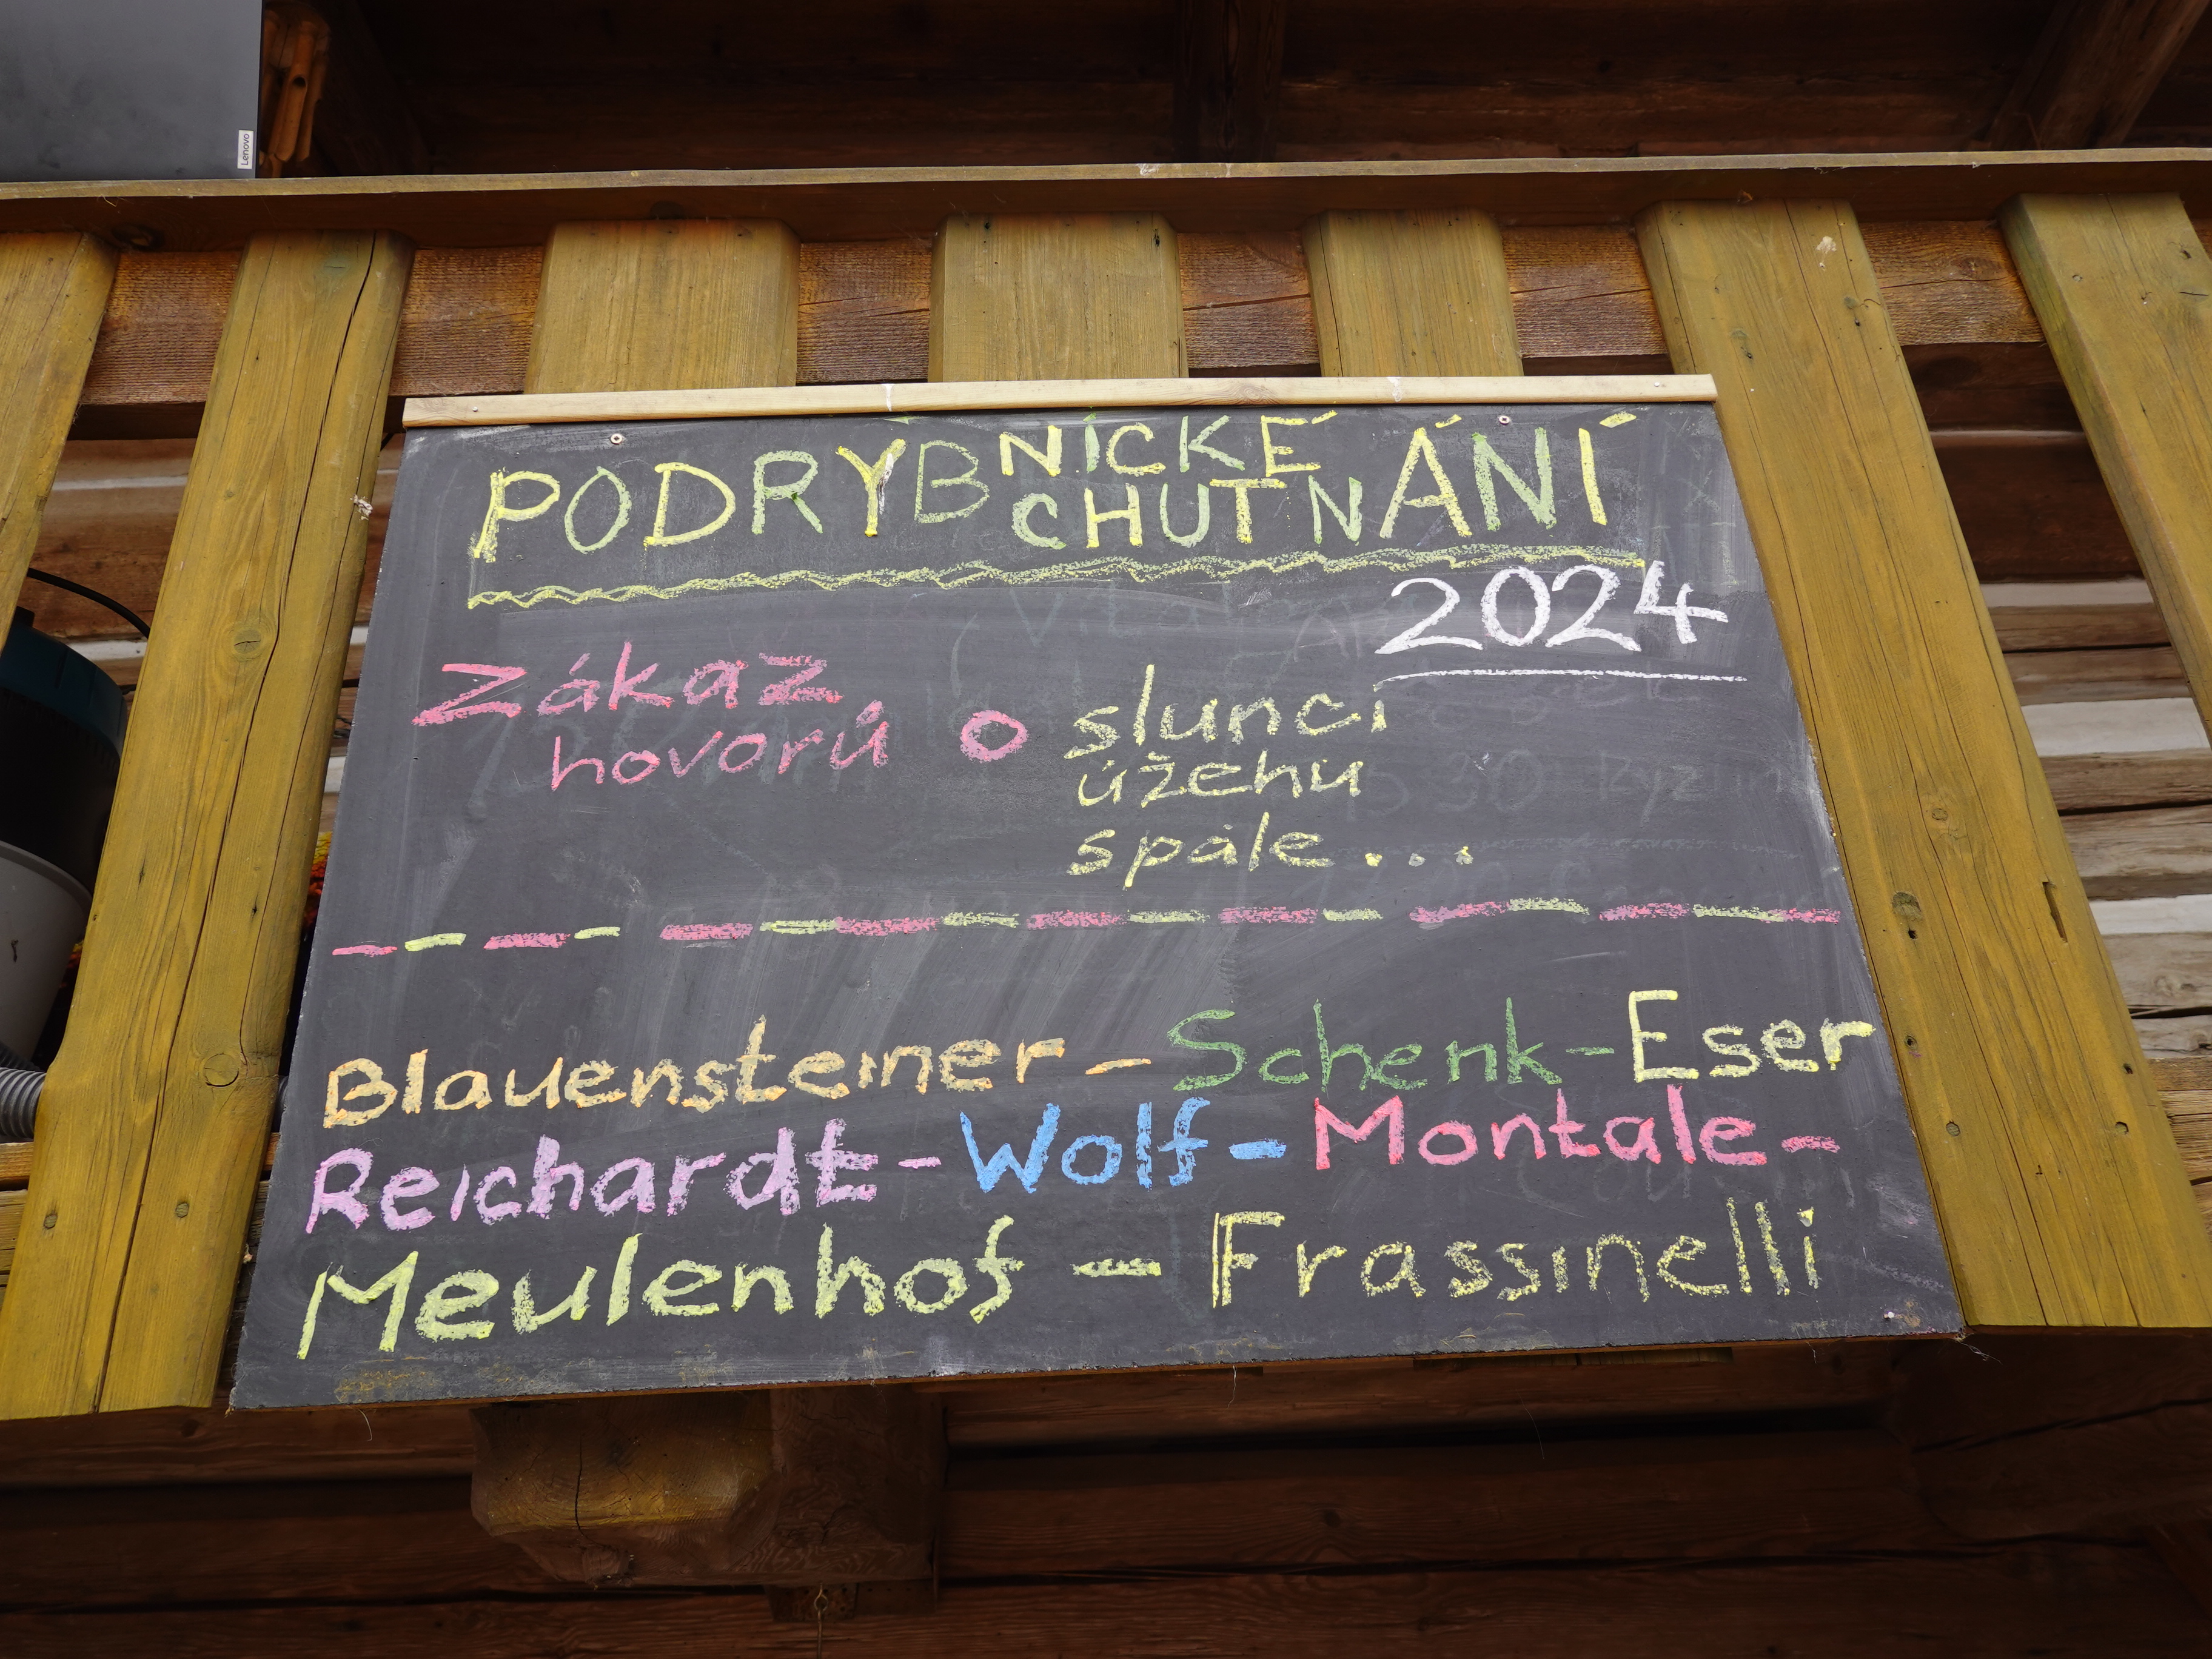 Lenovo
PODRYBNICKÉ
CHUTNÁNÍ
2024
Zákaz
hovorů o slunci
úžehu
spále...
Blauensteiner - Schenk - Eser
Reichardt - Wolf - Montale -
Meulenhof - Frassinelli